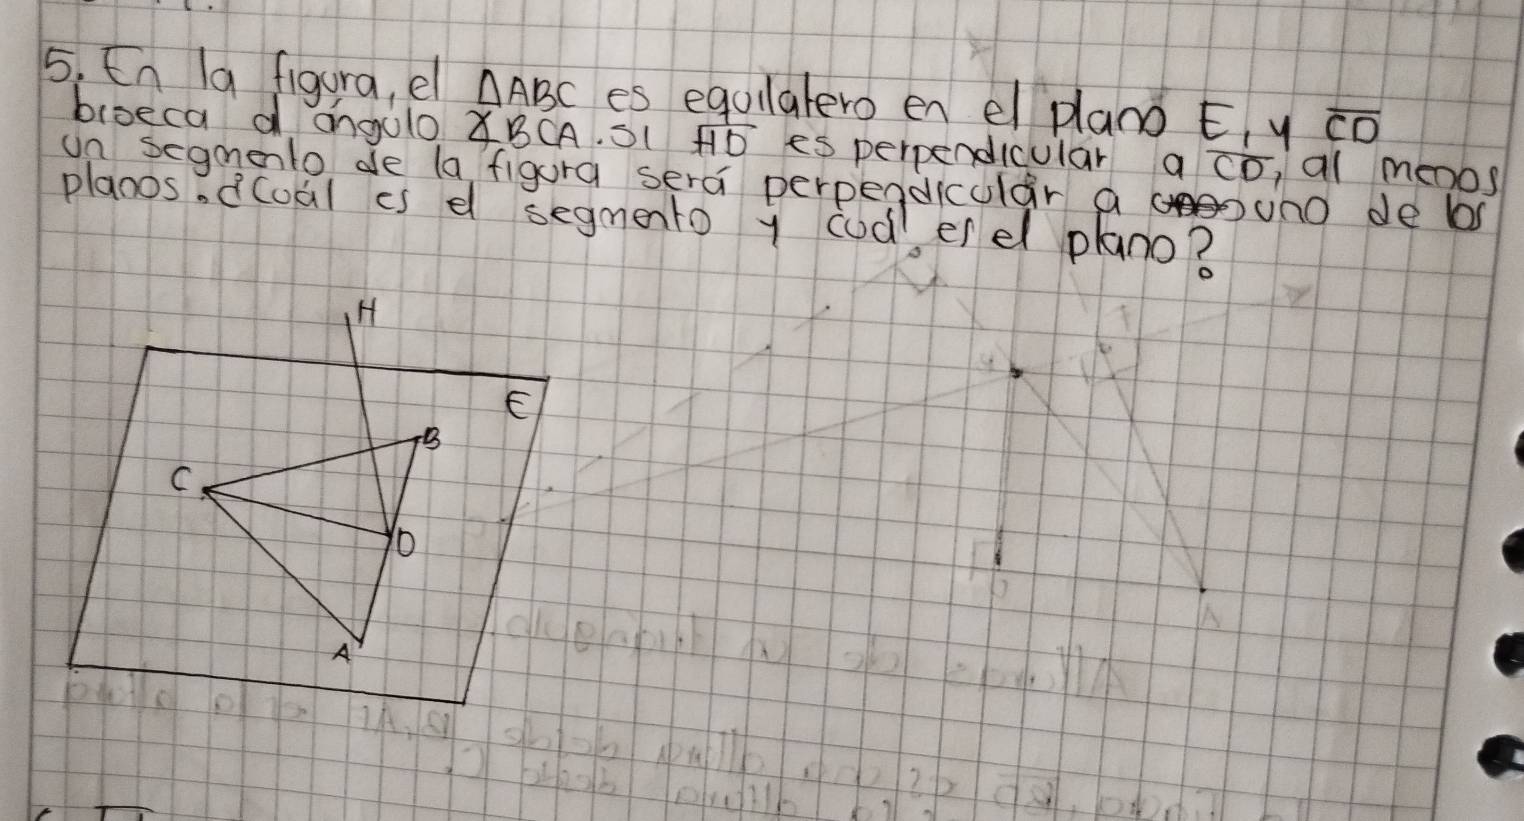 5. En la figura, el ΔABC es equilatero en el plano E, y CD
biseca el ángulo ∡BCA. Si HD es perpendicular a CD, al menos
un segmento de la figura será perpendicular a uno de los
planos. ¿Cuál es el segmento y cuál es el plano?
H
E
B
C
D
A
A
Alturas de un triangulo